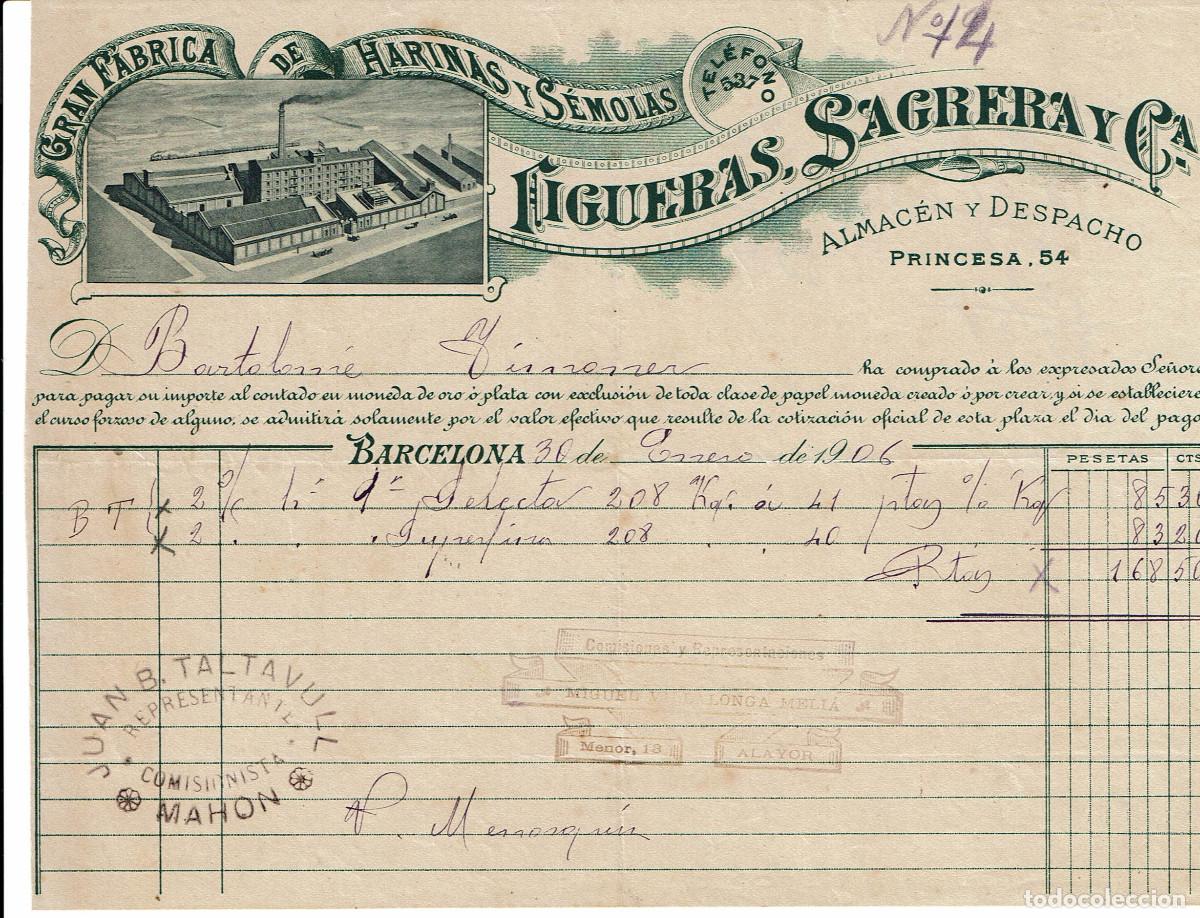 Nº 12
GRAN FÁBRICA DE HARINAS Y SÉMOLAS
TELÉFONO 537
FIGUERAS, SAGRERA Y Cª
ALMACÉN Y DESPACHO
PRINCESA, 54
D Bartolomé Timoner ha comprado á los expresados Señore
para pagar su importe al contado en moneda de oro ó plata con exclusión de toda clase de papel moneda creado ó por crear, y si se estableciere
el curso forzoso de alguno, se admitirá solamente por el valor efectivo que resulte de la cotización oficial de esta plaza el dia del pago
BARCELONA 30 de Enero de 1906
PESETAS CTS
B T 2 s/c hª 1ª Selecta 208 Kgs á 41 ptas % Kg 85 3
2 . . . Superfina 208 . . 40 83 20
Ptas 168 50
Comisiones y Representaciones
MIGUEL LONGA MELIÁ
Menor, 13 ALAYOR
JUAN B. TALTAVULL
REPRESENTANTE
COMISIONISTA
MAHON
V. Menorquín
todocoleccion